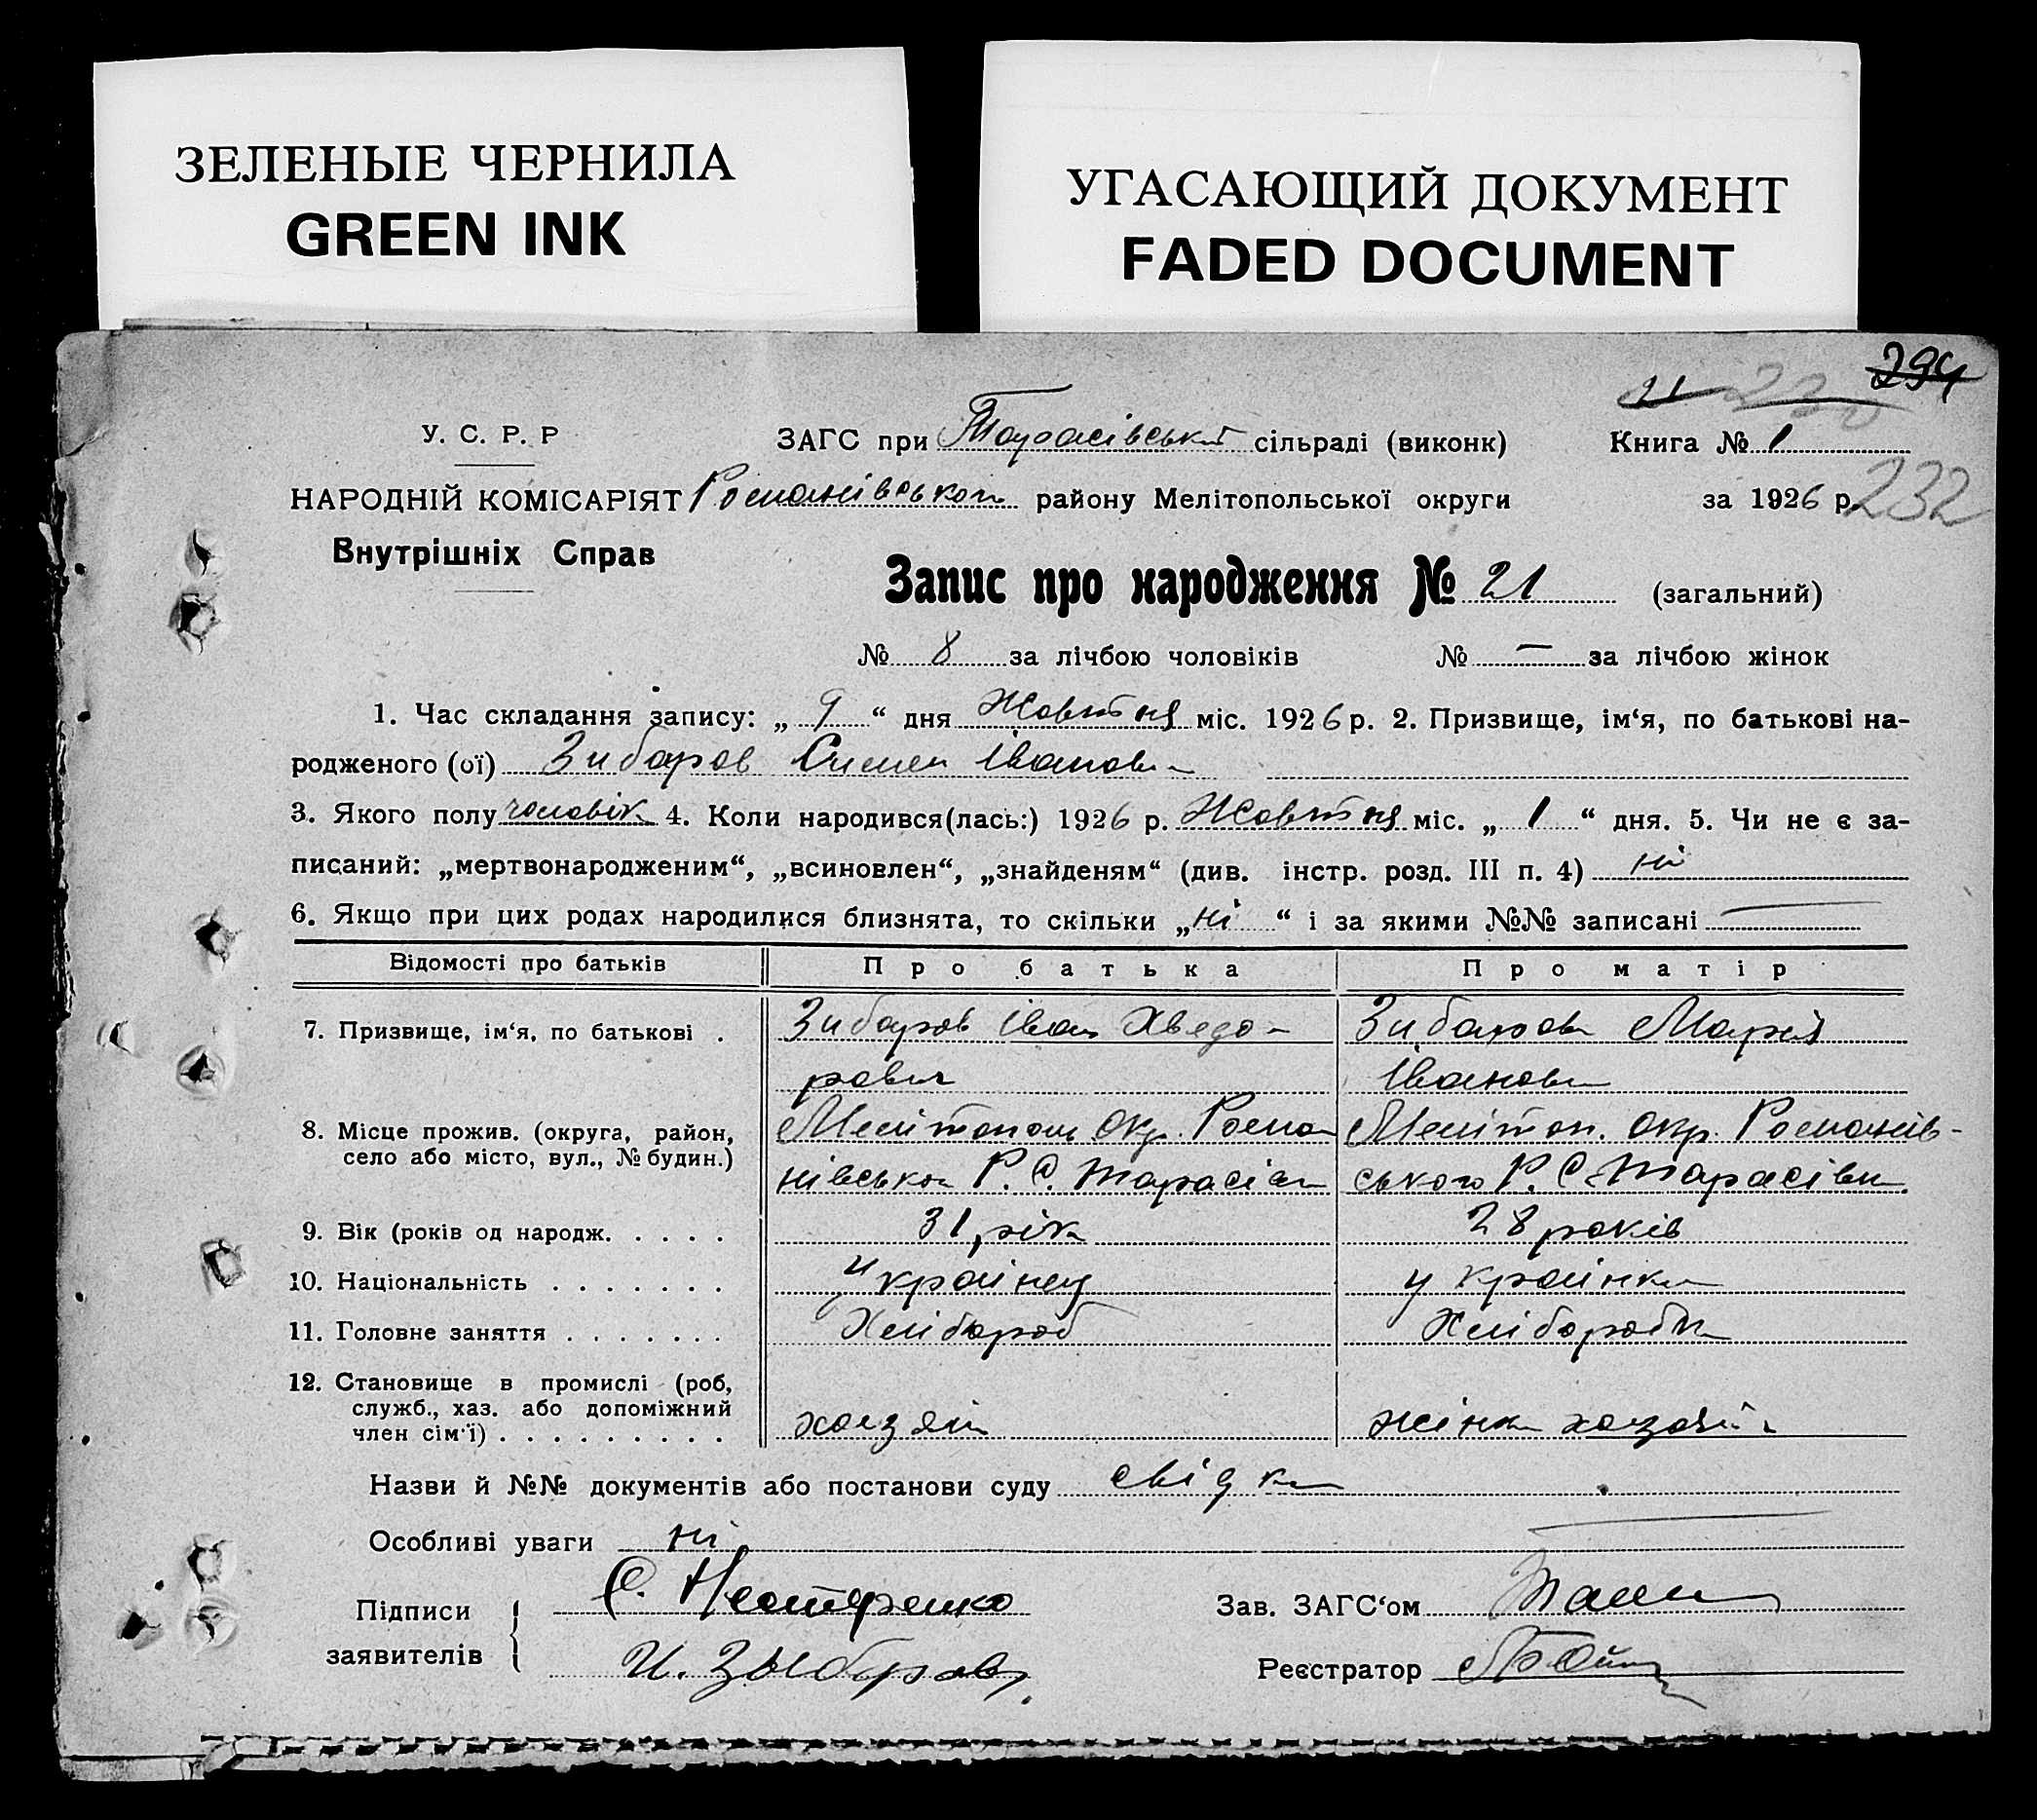 ЗЕЛЕНЫЕ ЧЕРНИЛА
GREEN INK
УГАСАЮЩИЙ ДОКУМЕНТ
FADED DOCUMENT
294
21 230
У. С. Р. Р ЗАГС при Тарасівській сільраді (виконк) Книга № 1
НАРОДНІЙ КОМІСАРІЯТ Романівського району Мелітопольської округи за 1926 р. 232
Внутрішніх Справ
Запис про народження № 21 (загальний)
№ 8 за лічбою чоловіків № — за лічбою жінок
1. Час складання запису: „ 9 “ дня Жовтня міс. 1926 р. 2. Призвище, ім‘я, по батькові на-
родженого (ої) Зибаров Симен Іванови
3. Якого полу чоловік 4. Коли народився(лась:) 1926 р. Жовтня міс. „ 1 “ дня. 5. Чи не є за-
писаний: „мертвонародженим“, „всиновлен“, „знайденям“ (див. інстр. розд. III п. 4) ні
6. Якщо при цих родах народилися близнята, то скільки „ ні “ і за якими №№ записані —
Відомості про батьків Про батька Про матір
7. Призвище, ім‘я, по батькові . Зибаров Іван Хведо- Зибарова Марія
рович Іванови
8. Місце прожив. (округа, район, Мелітополь окр. Рома Мелітоп. окр. Романів-
село або місто, вул., № будин.) нівсько Р. С. Тарасівки ського Р. С. Тарасівки.
9. Вік (років од народж. . . . . 31 рік 28 років
10. Національність . . . . . . . українец українка
11. Головне заняття . . . . . . . Хлібороб Хліборобка
12. Становище в промислі (роб,
служб., хаз. або допоміжний
член сім‘ї) . . . . . . . . . хазяїн жінка хазяїна
Назви й №№ документів або постанови суду свідки
Особливі уваги ні
Підписи С. Нестеренко Зав. ЗАГС‘ом
заявителів И. Зыбаров Реєстратор